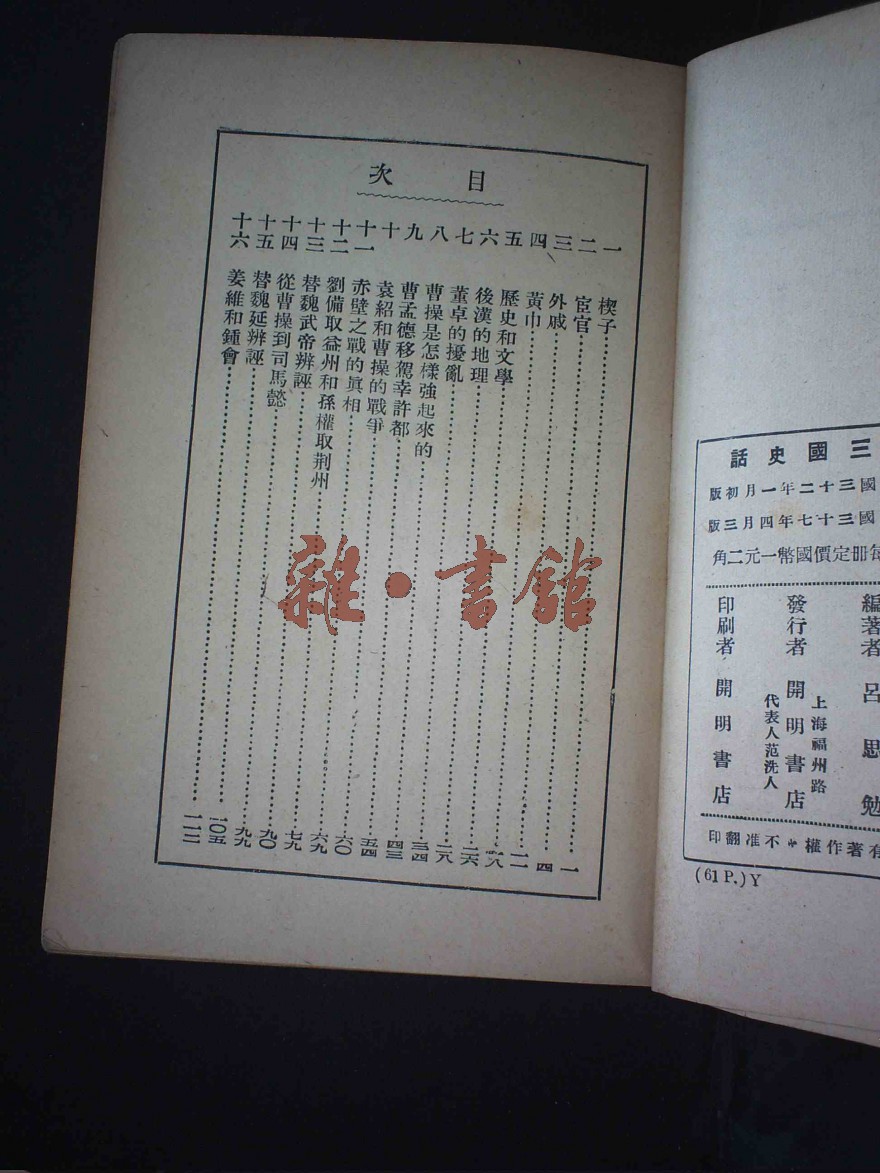 目次
一 楔子 一
二 宦官 四
三 外戚 一一
四 黃巾
五 歷史和文學
六 後漢的地理 二六
七 董卓的擾亂 二八
八 曹操是怎樣強起來的 三四
九 曹孟德移駕幸許都 四三
十 袁紹和曹操的戰爭 五四
十一 赤壁之戰的真相 六〇
十二 劉備取益州和孫權取荆州 六九
十三 替魏武帝辨誣 七九
十四 從曹操到司馬懿 九〇
十五 替魏延辨誣 九九
十六 姜維和鍾會 一〇五
一一二
雜·書館
三國史話
國三十二年一月初版
國三十七年四月三版
每册定價國幣一元二角
編著者 呂思勉
上海福州路
發行者 開明書店
代表人范洗人
印刷者 開明書店
有著作權不准翻印
(61 P.) Y